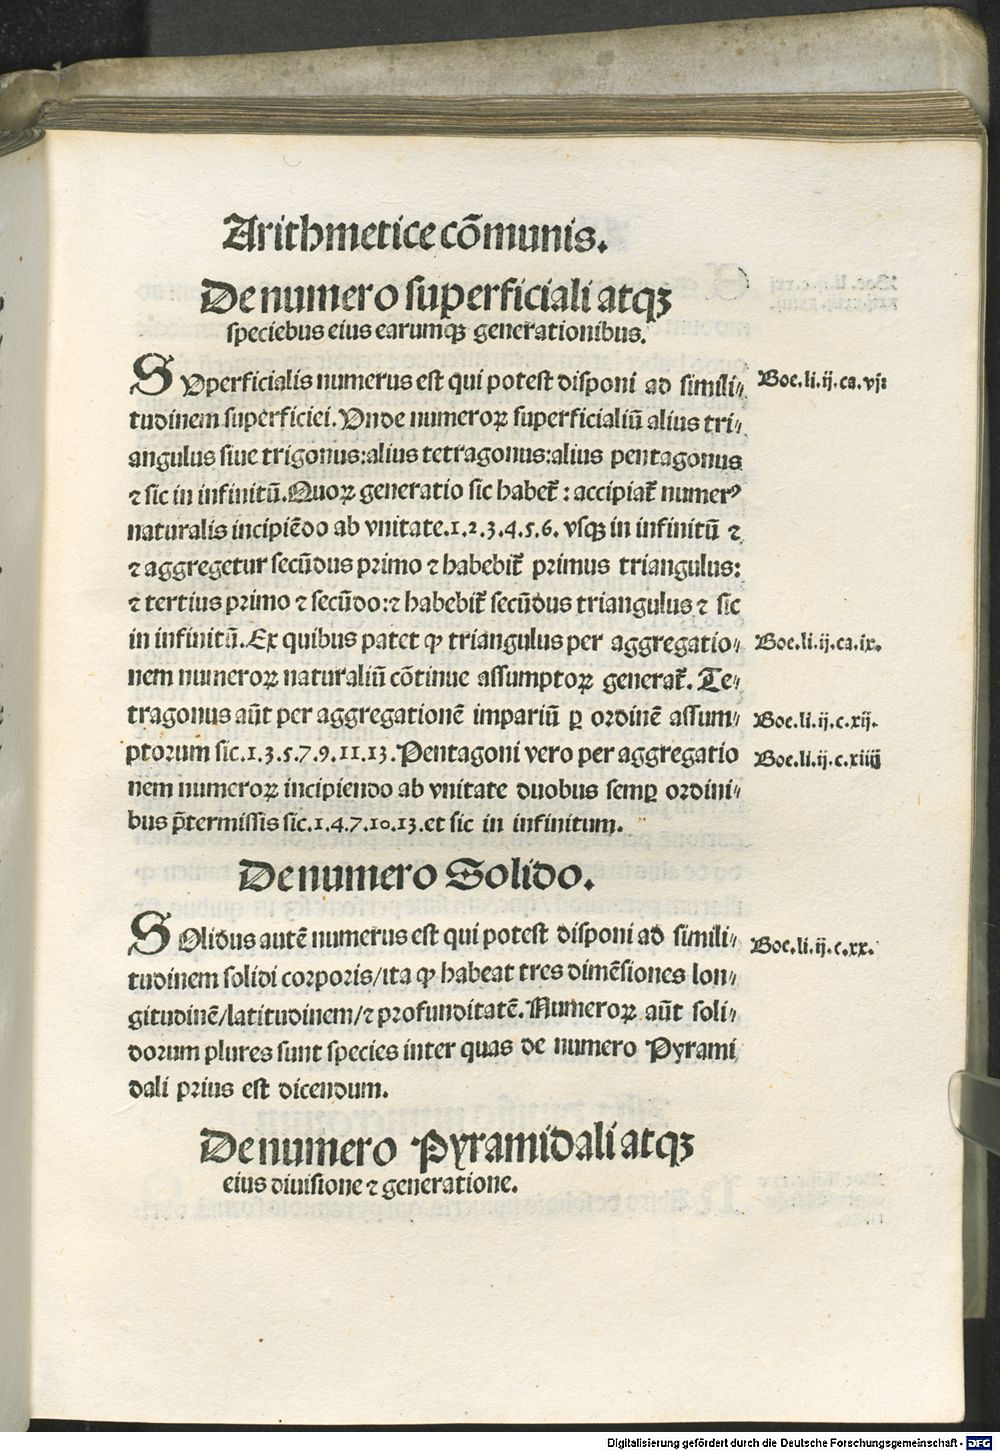 Arithmetice cōmunis.
De numero superficiali atqꝫ
speciebus eius earumqꝫ generationibus.
SVperficialis numerus est qui potest disponi ad simili⸗
Boe.li.ij.ca.vj:
tudinem superficiei. Vnde numeroꝝ superficialiū alius tri⸗
angulus siue trigonus:alius tetragonus:alius pentagonus
⁊ sic in infinitū.Quoꝝ generatio sic habet̄ : accipiat̄ numerꝰ
naturalis incipiēdo ab vnitate.1.2.3.4.5.6. vsqꝫ in infinitū ⁊
⁊ aggregetur secūdus primo ⁊ habebit̄ primus triangulus:
⁊ tertius primo ⁊ secūdo:⁊ habebit̄ secūdus triangulus ⁊ sic
in infinitū.Ex quibus patet ꝙ triangulus per aggregatio⸗
Boe.li.ij.ca.ix.
nem numeroꝝ naturaliū cōtinue assumptoꝝ generat̄. Te⸗
tragonus aūt per aggregationē impariū ꝑ ordinē assum⸗
Boe.li.ij.c.xij.
ptorum sic.1.3.5.7.9.11.13.Pentagoni vero per aggregatio
Boe.li.ij.c.xiiij
nem numeroꝝ incipiendo ab vnitate duobus semꝑ ordini⸗
bus p̄termissis sic.1.4.7.10.13.et sic in infinitum.
De numero Solido.
SOlidus autē numerus est qui potest disponi ad simili⸗
Boe.li.ij.c.xx.
tudinem solidi corporis/ita ꝙ habeat tres dimēsiones lon⸗
gitudinē/latitudinem/⁊ profunditatē. Numeroꝝ aūt soli⸗
dorum plures sunt species inter quas de numero Pyrami
dali prius est dicendum.
De numero Pyramidali atqꝫ
eius diuisione ⁊ generatione.
Digitalisierung gefördert durch die Deutsche Forschungsgemeinschaft - DFG